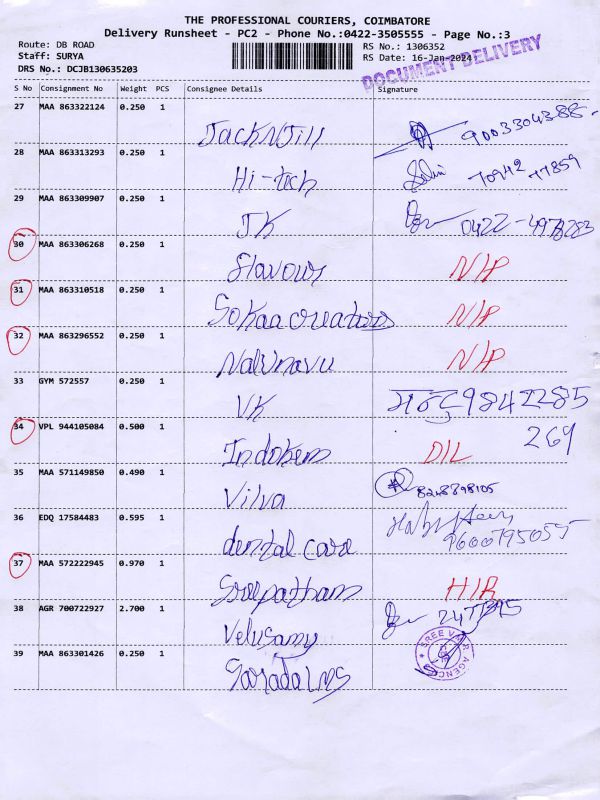 THE PROFESSIONAL COURIERS, COIMBATORE
Delivery Runsheet - PC2 - Phone No.:0422-3505555 - Page No.:3
Route: DB ROAD RS No.: 1306352
Staff: SURYA RS Date: 16-Jan-2024
DRS No.: DCJB130635203 DOCUMENT DELIVERY
S No Consignment No Weight PCS Consignee Details Signature
27 MAA 863322124 0.250 1
JackNJill 9003304388-
28 MAA 863313293 0.250 1
Hi-tech 70942 77859
29 MAA 863309907 0.250 1
JK 0422-4978283
30 MAA 863306268 0.250 1
flavours N/P
31 MAA 863310518 0.250 1
Sokaa creators N/P
32 MAA 863296552 0.250 1
N/P
33 GYM 572557 0.250 1
VK 9842285
269
34 VPL 944105084 0.500 1
Indokem D/L
35 MAA 571149850 0.490 1
Vilva 8248898105
36 EDQ 17584483 0.595 1
dental care 9600795055
37 MAA 572222945 0.970 1
Sreepatham H/R
38 AGR 700722927 2.700 1
Velusamy
39 MAA 863301426 0.250 1